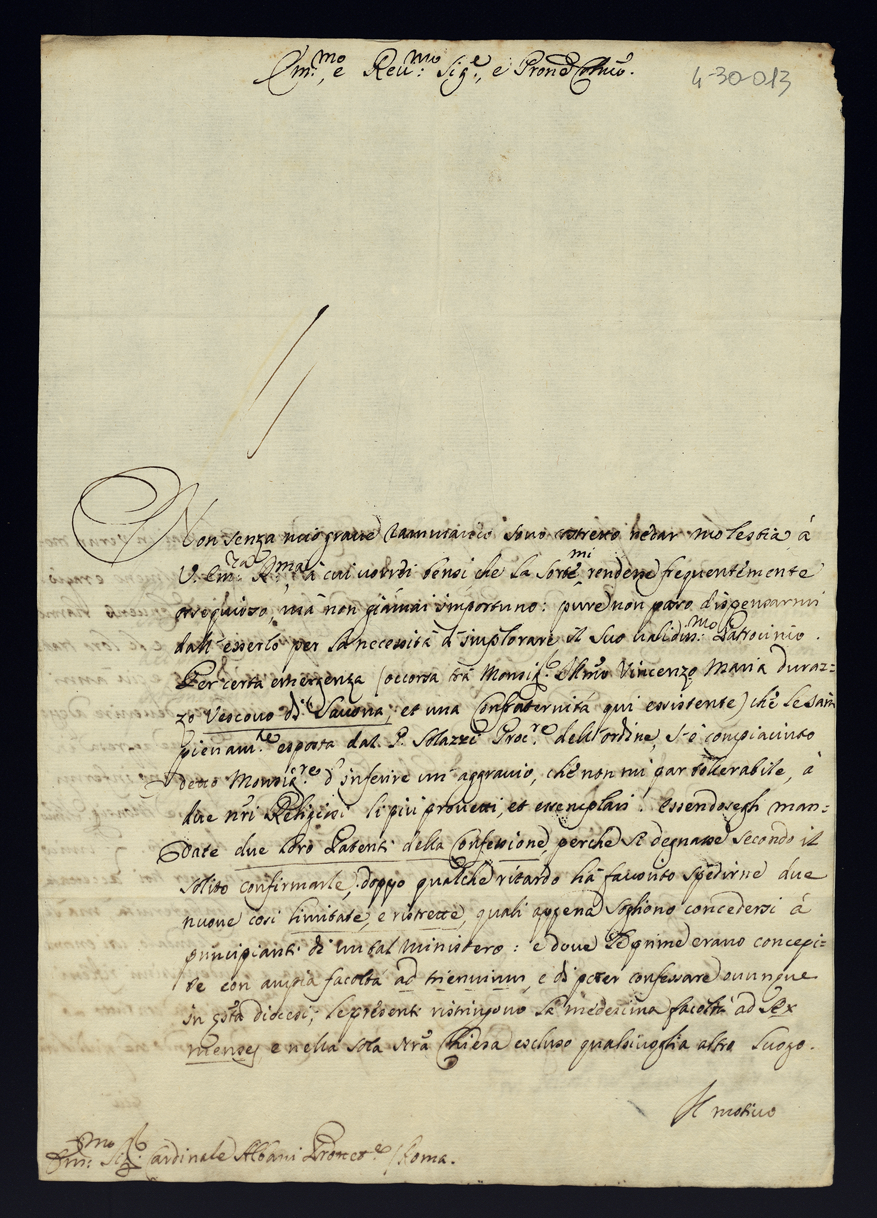 Em.mo, e Reu.mo Sig.e, e Prone Colmo.
4-30-013
Non senza mio graue rammarico sono costretto di dar molestia à
V. Em.za R.ma à cui vorrei bensi che la sorte mi rendesse frequentemente
ossequioso, mà non giamai importuno: pure non posso dispensarmi
dall'esserlo per la necessità d'implorare il suo validis.mo Patrocinio.
Per certa emergenza (occorsa trà Monsig.e Illmo Vincenzo Maria Duraz=
zo Vescouo di Sauona, et una Confraternità qui essistente) che le sarà
pienam.te esposta dal P. Solazzi Proc.re dell'ordine, s'è compiaciuto
detto Monsig.re d'inferire un'aggrauio, che non mi par tollerabile, à
due nri Religiosi li più prouetti, et exemplari! Essendosegli man=
date due loro Patenti della Confessione, perche si degnasse secondo il
solito confirmarle, doppo qualche ritardo hà fauorito spedirne due
nuoue così limitate, e ristrette, quali appena sogliono concedersi à
principianti di un tal ministero: e doue le prime erano concepi=
te con ampia facoltà ad triennium, e di poter confessare ouunque
in qsta diocesi; le presenti ristringono la medesima facoltà ad sex
menses e nella sola nra Chiesa escluso qualsiuoglia altro luogo.
Il motiuo
Em.mo Sig. Cardinale Albani Pronet.e / Roma.